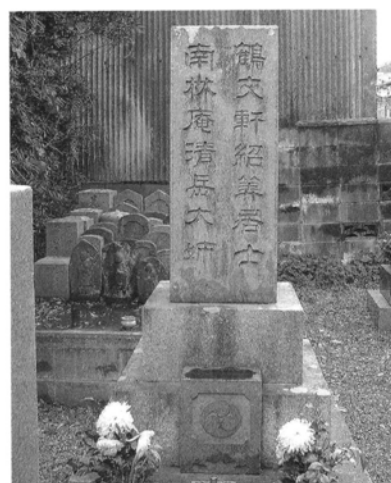 鶴文軒紹尊居士
南林庵清岳大姉